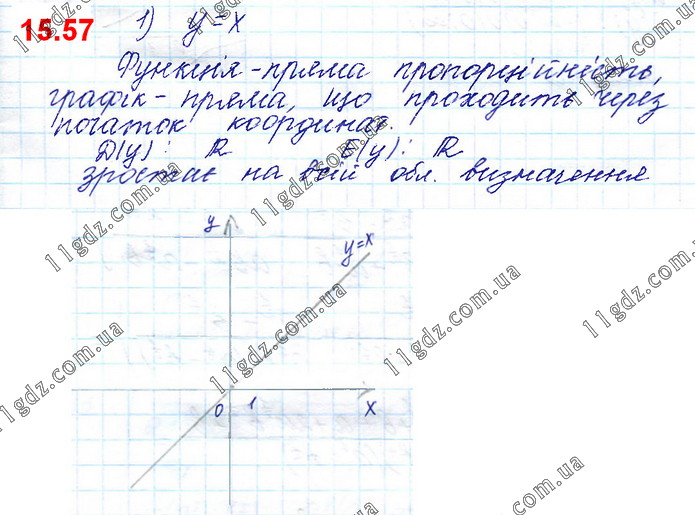 15.57 1) y=x
Функція-пряма пропорційність,
графік-пряма, що проходить через
початок координат.
D(y): R E(y): R
зростає на всій обл. визначення
y
y=x
0 1 x
11gdz.com.ua
11gdz.com.ua
11gdz.com.ua
11gdz.com.ua
11gdz.com.ua
11gdz.com.ua
11gdz.com.ua
11gdz.com.ua
11gdz.com.ua
11gdz.com.ua
11gdz.com.ua